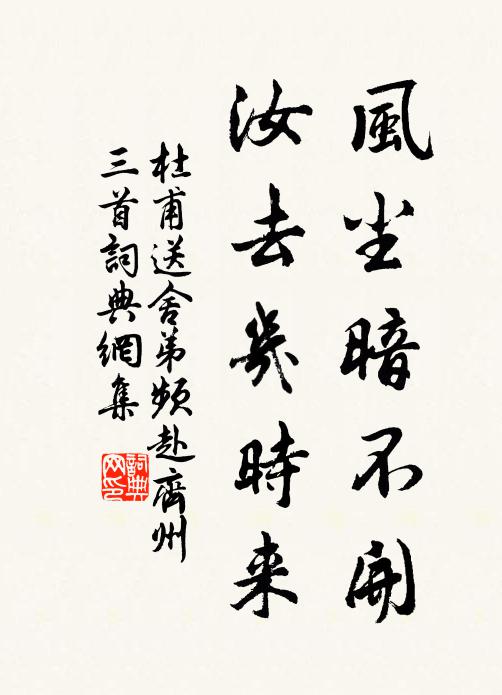 風尘暗不開
汝去幾時来
杜甫送舍弟频赴齊州
三首詞典網集
詞典网印